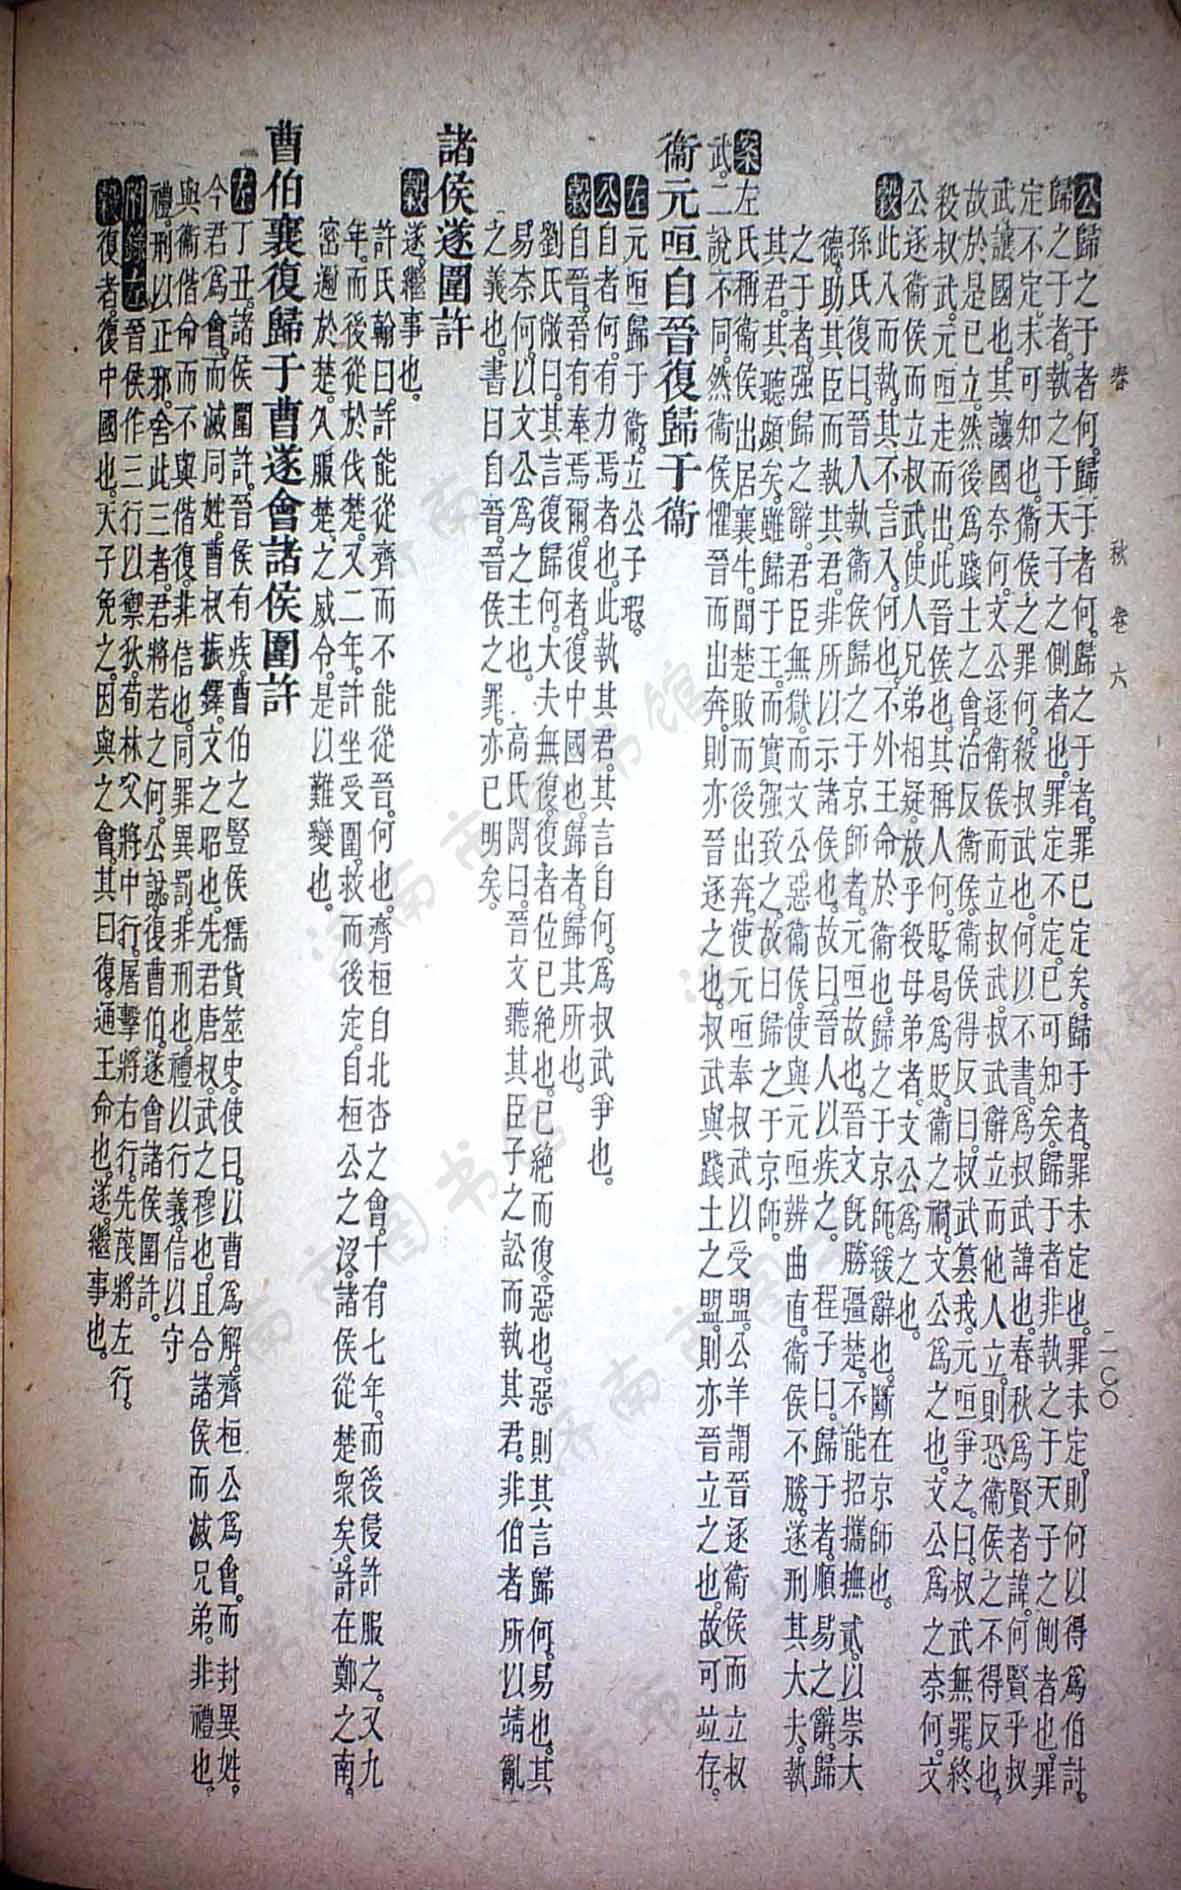 春秋 卷六 二〇〇
公歸之于者何。歸于者何。歸之于者。罪已定矣。歸于者。罪未定也。罪未定。則何以得爲伯討。
歸之于者。執之于天子之側者也。罪定不定。已可知矣。歸于者。非執之于天子之側者也。罪
定不定。未可知也。衞侯之罪何。殺叔武也。何以不書。爲叔武諱也。春秋爲賢者諱。何賢乎叔
武。讓國也。其讓國奈何。文公逐衞侯而立叔武。叔武辭立而他人立。則恐衞侯之不得反也。
故於是已立。然後爲踐土之會。治反衞侯。衞侯得反曰。叔武篡我。元咺爭之。曰。叔武無罪。終
殺叔武。元咺走而出。此晉侯也。其稱人何。貶。曷爲貶。衞之禍。文公爲之也。文公爲之奈何。文
公逐衞侯而立叔武。使人兄弟相疑。放乎殺母弟者。文公爲之也。
穀此入而執。其不言入。何也。不外王命於衞也。歸之于京師。緩辭也。斷在京師也。
孫氏復曰。晉人執衞侯歸之于京師者。元咺故也。晉文旣勝彊楚。不能招攜撫貳。以崇大
德。助其臣而執其君。非所以示諸侯也。故曰。晉人以疾之。 程子曰。歸于者。順易之辭。歸
之于者。强歸之辭。君臣無獄。而文公惡衞侯。使與元咺辨曲直。衞侯不勝。遂刑其大夫。執
其君。其聽頗矣。雖歸于王。而實强致之。故曰歸之于京師。
案左氏稱衞侯出居襄牛。聞楚敗而後出奔。使元咺奉叔武以受盟。公羊謂晉逐衞侯而立叔
武。二說不同。然衞侯懼晉而出奔。則亦晉逐之也。叔武與踐土之盟。則亦晉立之也。故可竝存。
衞元咺自晉復歸于衞
左元咺歸于衞。立公子瑕。
公自者何。有力焉者也。此執其君。其言自何。爲叔武爭也。
穀自晉。晉有奉焉爾。復者。復中國也。歸者。歸其所也。
劉氏敞曰。其言復歸何。大夫無復。復者位已絕也。已絕而復。惡也。惡則其言歸何。易也。其
易奈何。以文公爲之主也。 高氏閌曰。晉文聽其臣子之訟而執其君。非伯者所以靖亂
之義也。書曰自晉。晉侯之罪。亦已明矣。
諸侯遂圍許
穀遂。繼事也。
許氏翰曰。許能從齊而不能從晉。何也。齊桓自北杏之會。十有七年。而後侵許服之。又九
年。而後從於伐楚。又二年。許坐受圍。救而後定。自桓公之沒。諸侯從楚衆矣。許在鄭之南。
密邇於楚。久服楚之威令。是以難變也。
曹伯襄復歸于曹遂會諸侯圍許
左丁丑。諸侯圍許。晉侯有疾。曹伯之豎侯獳貨筮史。使曰。以曹爲解。齊桓公爲會。而封異姓。
今君爲會。而滅同姓。曹叔振鐸。文之昭也。先君唐叔。武之穆也。且合諸侯而滅兄弟。非禮也。
與衞偕命。而不與偕復。非信也。同罪異罰。非刑也。禮以行義。信以守
禮。刑以正邪。舍此三者。君將若之何。公說。復曹伯。遂會諸侯圍許。
附錄左晉侯作三行以禦狄。荀林父將中行。屠擊將右行。先蔑將左行。
穀復者。復中國也。天子免之。因與之會。其曰復。通王命也。遂。繼事也。